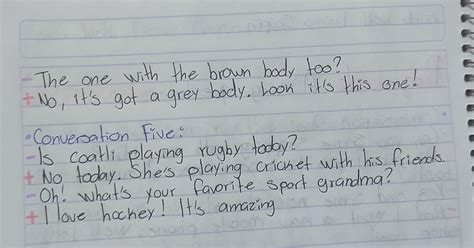 - The one with the brown body too?
+ No, it's got a grey body. Look it's this one!
• Conversation Five:
- Is coatli playing rugby today?
+ No today. She's playing cricket with his friends
- Oh! what's your favorite sport grandma?
+ I love hockey! It's amazing